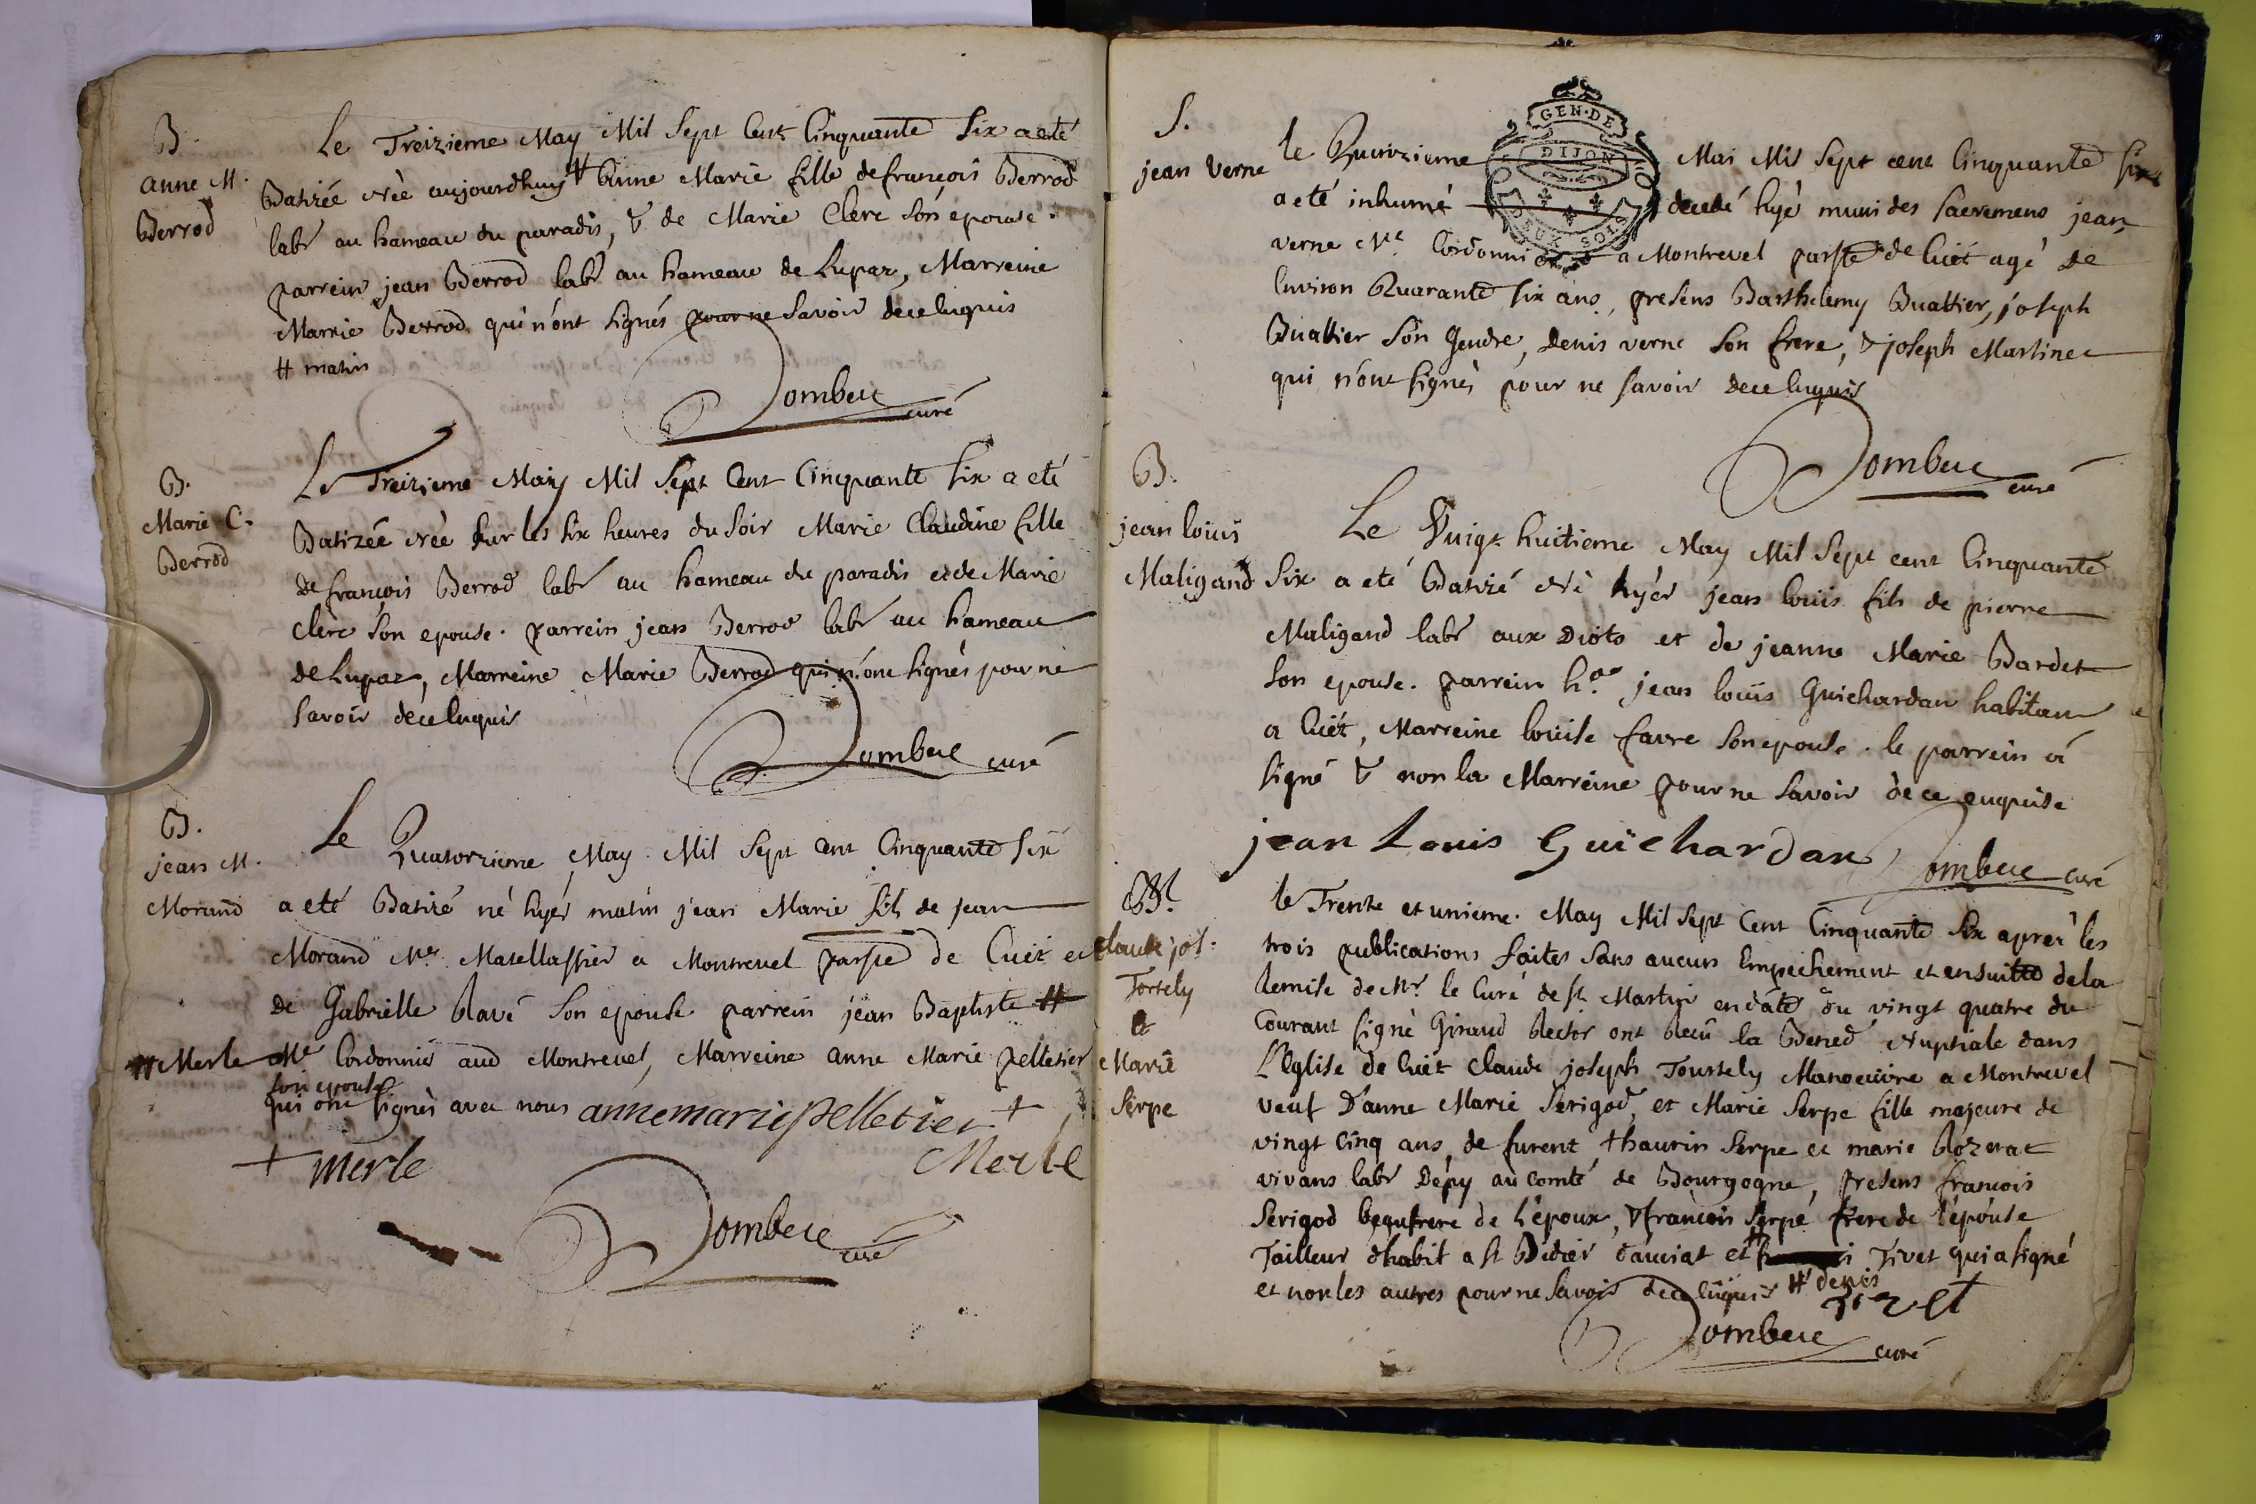 B.
anne M.
Berrod
Le Treizieme May Mil Sept Cent Cinquante Six a eté
Batizée Née aujourdhuy # Anne Marie fille de françois Berrod
labr au hameau du paradis, & de Marie Clerc son epouse.
parrein jean Berrod labr au hameau de Lupaz, Marreine
Marrie Berrod qui n'ont signés pour ne Savoir de ce Enquis
# matin
Dombeie curé
B.
Marie C.
Berrod
Le Treizieme May Mil Sept Cent Cinquante Six a eté
Batizée Née Sur les Six heures du Soir Marie Claudine fille
de françois Berrod labr au hameau du paradis et de Marie
Clerc Son epouse. parrein jean Berrod labr au hameau
de Lupaz, Marreine Marie Berrod qui n'ont Signés pour ne
Savoir de ce Enquis
Dombeie curé
B.
jean M.
Morand
Le Quatorzieme May Mil Sept Cent Cinquante Six
a eté Batizé né hyér matin jean Marie fils de jean
Morand Me Matellassier a Montrevel parsse de Cuët et
de Gabrielle Ravé Son epouse parrein jean Baptiste #
# Merle Me Cordonnier aud Montrevel, Marreine anne Marie pelletier
son epouse
qui ont signès avec nous annemarie pelletier +
+ merle
Merle
Dombeie curé
S.
jean Verne
GEN. DE
DIJON
DEUX SOLS
le Quinzieme Mai Mil Sept cent Cinquante Six
a eté inhumé decedé hyèr muni des Sacremens jean
verne Me Cordonnier a Montrevel parsse de Cuët agé de
Environ Quarante Six ans, presens Barthelemy Buattier, joseph
Buattier Son Gendre, denis verne Son frere, & joseph Martinet
qui n'ont signès pour ne savoir de ce Enquis
Dombeie curé
B.
jean louis
Maligand
Le Vingt huitieme May Mil Sept cent Cinquante
Six a eté Batizé Né hyér jean louis fils de pierre
Maligand labr aux Diots et de jeanne Marie Bardet
Son epouse. parrein he jean louis Guichardan habitant
a Cuët, Marreine louise favre Son epouse. le parrein a
signé & non la Marreine pour ne Savoir de ce enquise
jean Louis Guichardan Dombeie curé
M.
Claude jos.
Tortely
et
Marie
Serpe
le Trente et unieme May Mil Sept Cent Cinquante Six aprer les
trois publications faites Sans aucun Empechement et ensuitte de la
remise de Mr. le Curé de St Martin en date du vingt quatre du
Courant signé Giraud Rector ont Recû la Bened Nuptiale dans
L'Eglise de Cuët Claude joseph Tourtely Manoeuvre a Montrevel
veuf D'anne Marie Serigod, et Marie Serpe fille majeure de
vingt Cinq ans, de furent thaurin Serpe et marie Rozerat
vivans labr Dépy au Comté de Bourgogne, presens françois
Serigod beaufrere de l'epoux, & françois Serpe frere de l'epouse
Tailleur dhabit a St Didier daussiat et # Tivet qui a signé
et non les autres pour ne Savoir de ce Enquis # denis
Tivet
Dombeie curé